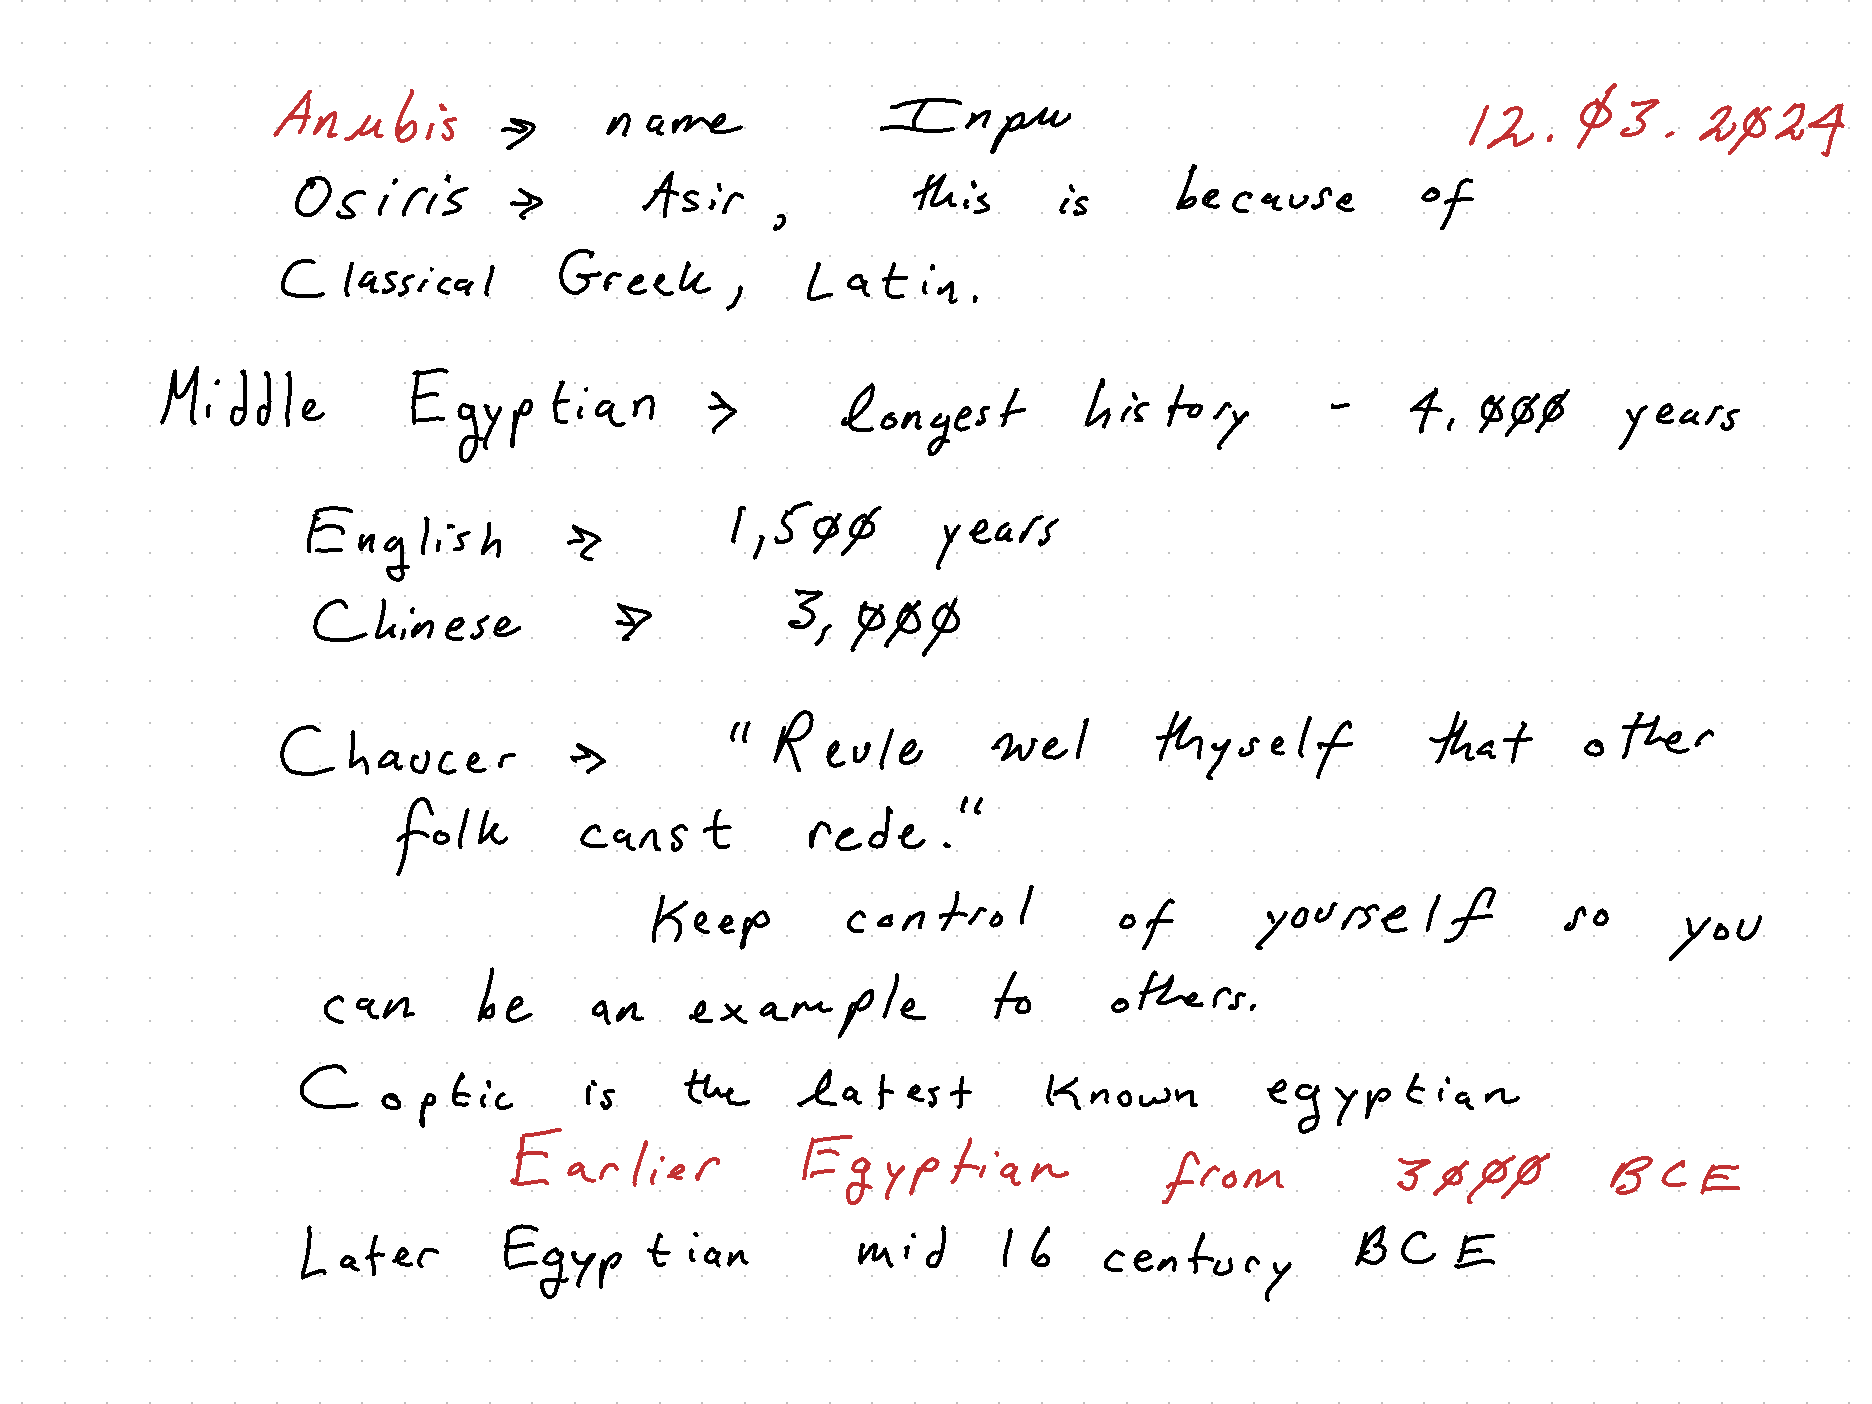 Anubis → name Inpu 12.03.2024
Osiris → Asir, this is because of
Classical Greek, Latin.
Middle Egyptian → longest history - 4,000 years
English → 1,500 years
Chinese → 3,000
Chaucer → "Reule wel thyself that other
folk canst rede."
Keep control of yourself so you
can be an example to others.
Coptic is the latest known egyptian
Earlier Egyptian from 3000 BCE
Later Egyptian mid 16 century BCE